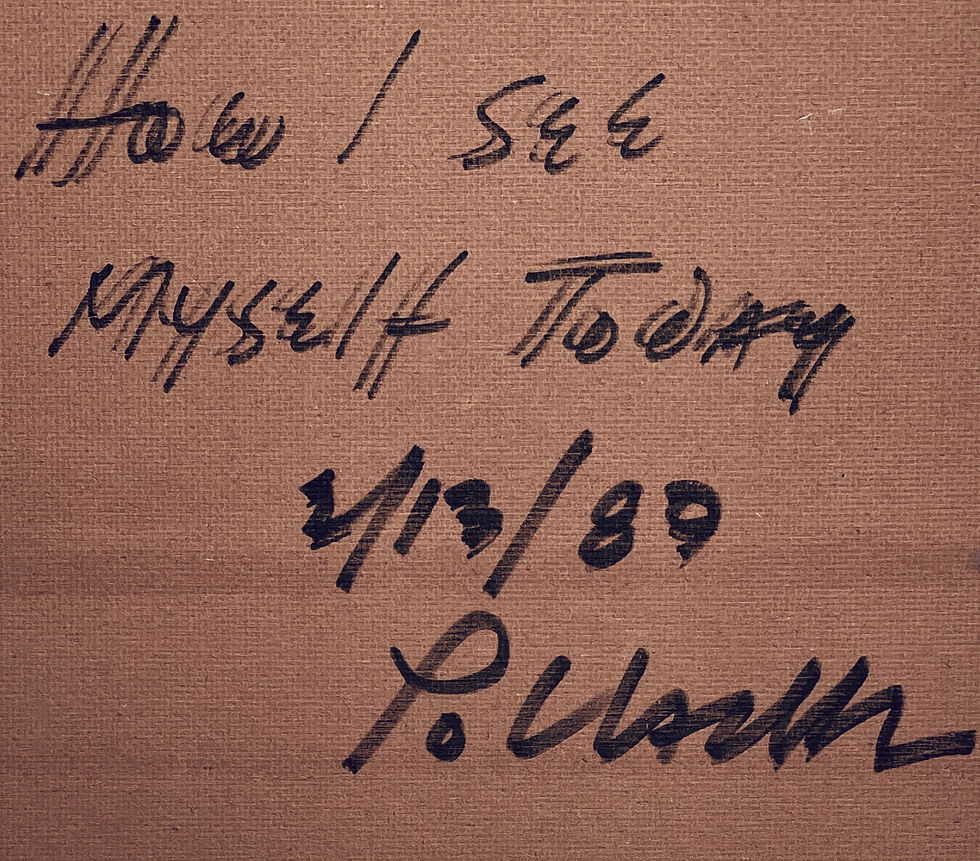 How I SEE
Myself Today
2/13/89